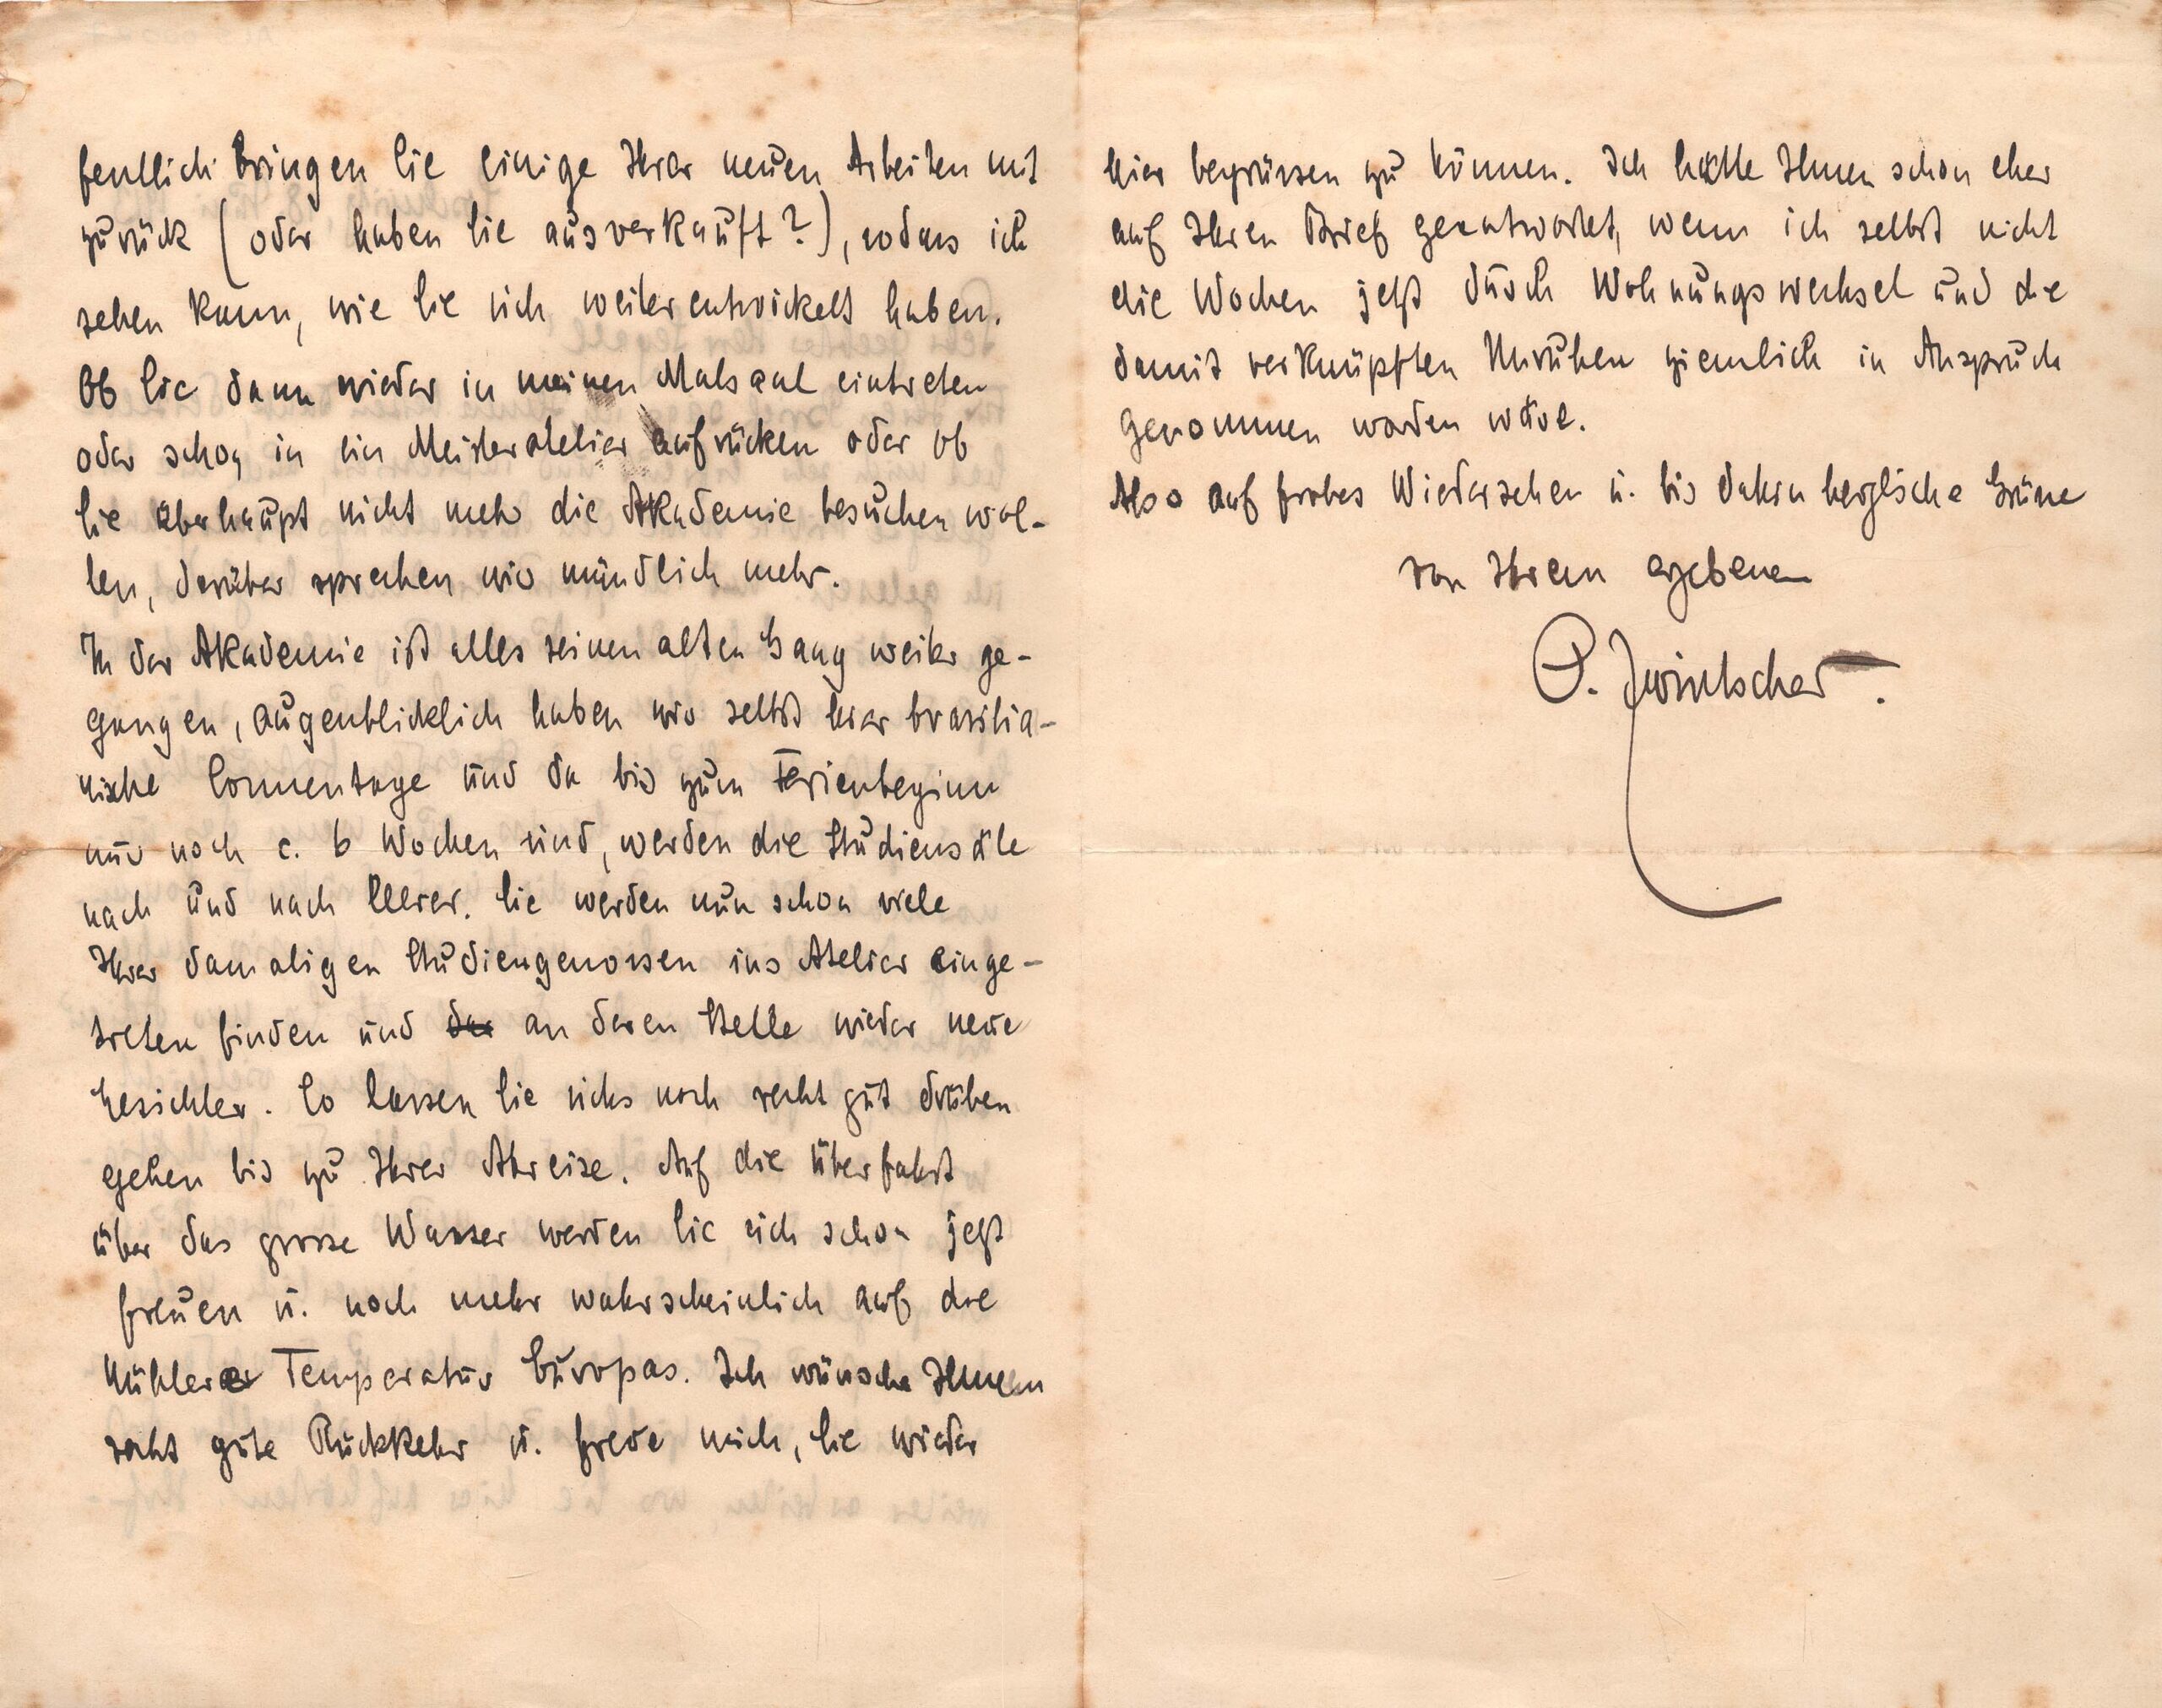 fentlich bringen Sie einige Ihrer neuen Arbeiten mit
zurück (oder haben Sie ausverkauft?), sodass ich
sehen kann, wie Sie sich weiterentwickelt haben.
Ob Sie dann wieder in meinen Malsaal eintreten
oder schon in ein Meisteratelier aufrücken oder ob
Sie überhaupt nicht mehr die Akademie besuchen wol-
len, darüber sprechen wir mündlich mehr.
In der Akademie ist alles seinen alten Gang weiter ge-
gangen, augenblicklich haben wir selbst hier brasilia-
nische Sonnentage und da bis zum Ferienbeginn
nur noch c. 6 Wochen sind, werden die Studiensäle
nach und nach leerer. Sie werden nun schon viele
Ihrer damaligen Studiengenossen ins Atelier einge-
treten finden und der an deren Stelle wieder neue
Gesichter. So lassen Sie sichs noch recht gut drüben
gehen bis zu Ihrer Abreise. Auf die Überfahrt
über das grosse Wasser werden Sie sich schon jetzt
freuen u. noch mehr wahrscheinlich auf die
kühlere Temperatur Europas. Ich wünsche Ihnen
recht gute Rückkehr u. freue mich, Sie wieder
hier begrüssen zu können. Ich hätte Ihnen schon eher
auf Ihren Brief geantwortet, wenn ich selbst nicht
die Wochen jetzt durch Wohnungswechsel und die
damit verknüpften Unruhen ziemlich in Anspruch
genommen worden wäre.
Also auf frohes Wiedersehen u. bis dahin herzliche Grüsse
von Ihrem ergebenen
O. Zwintscher.